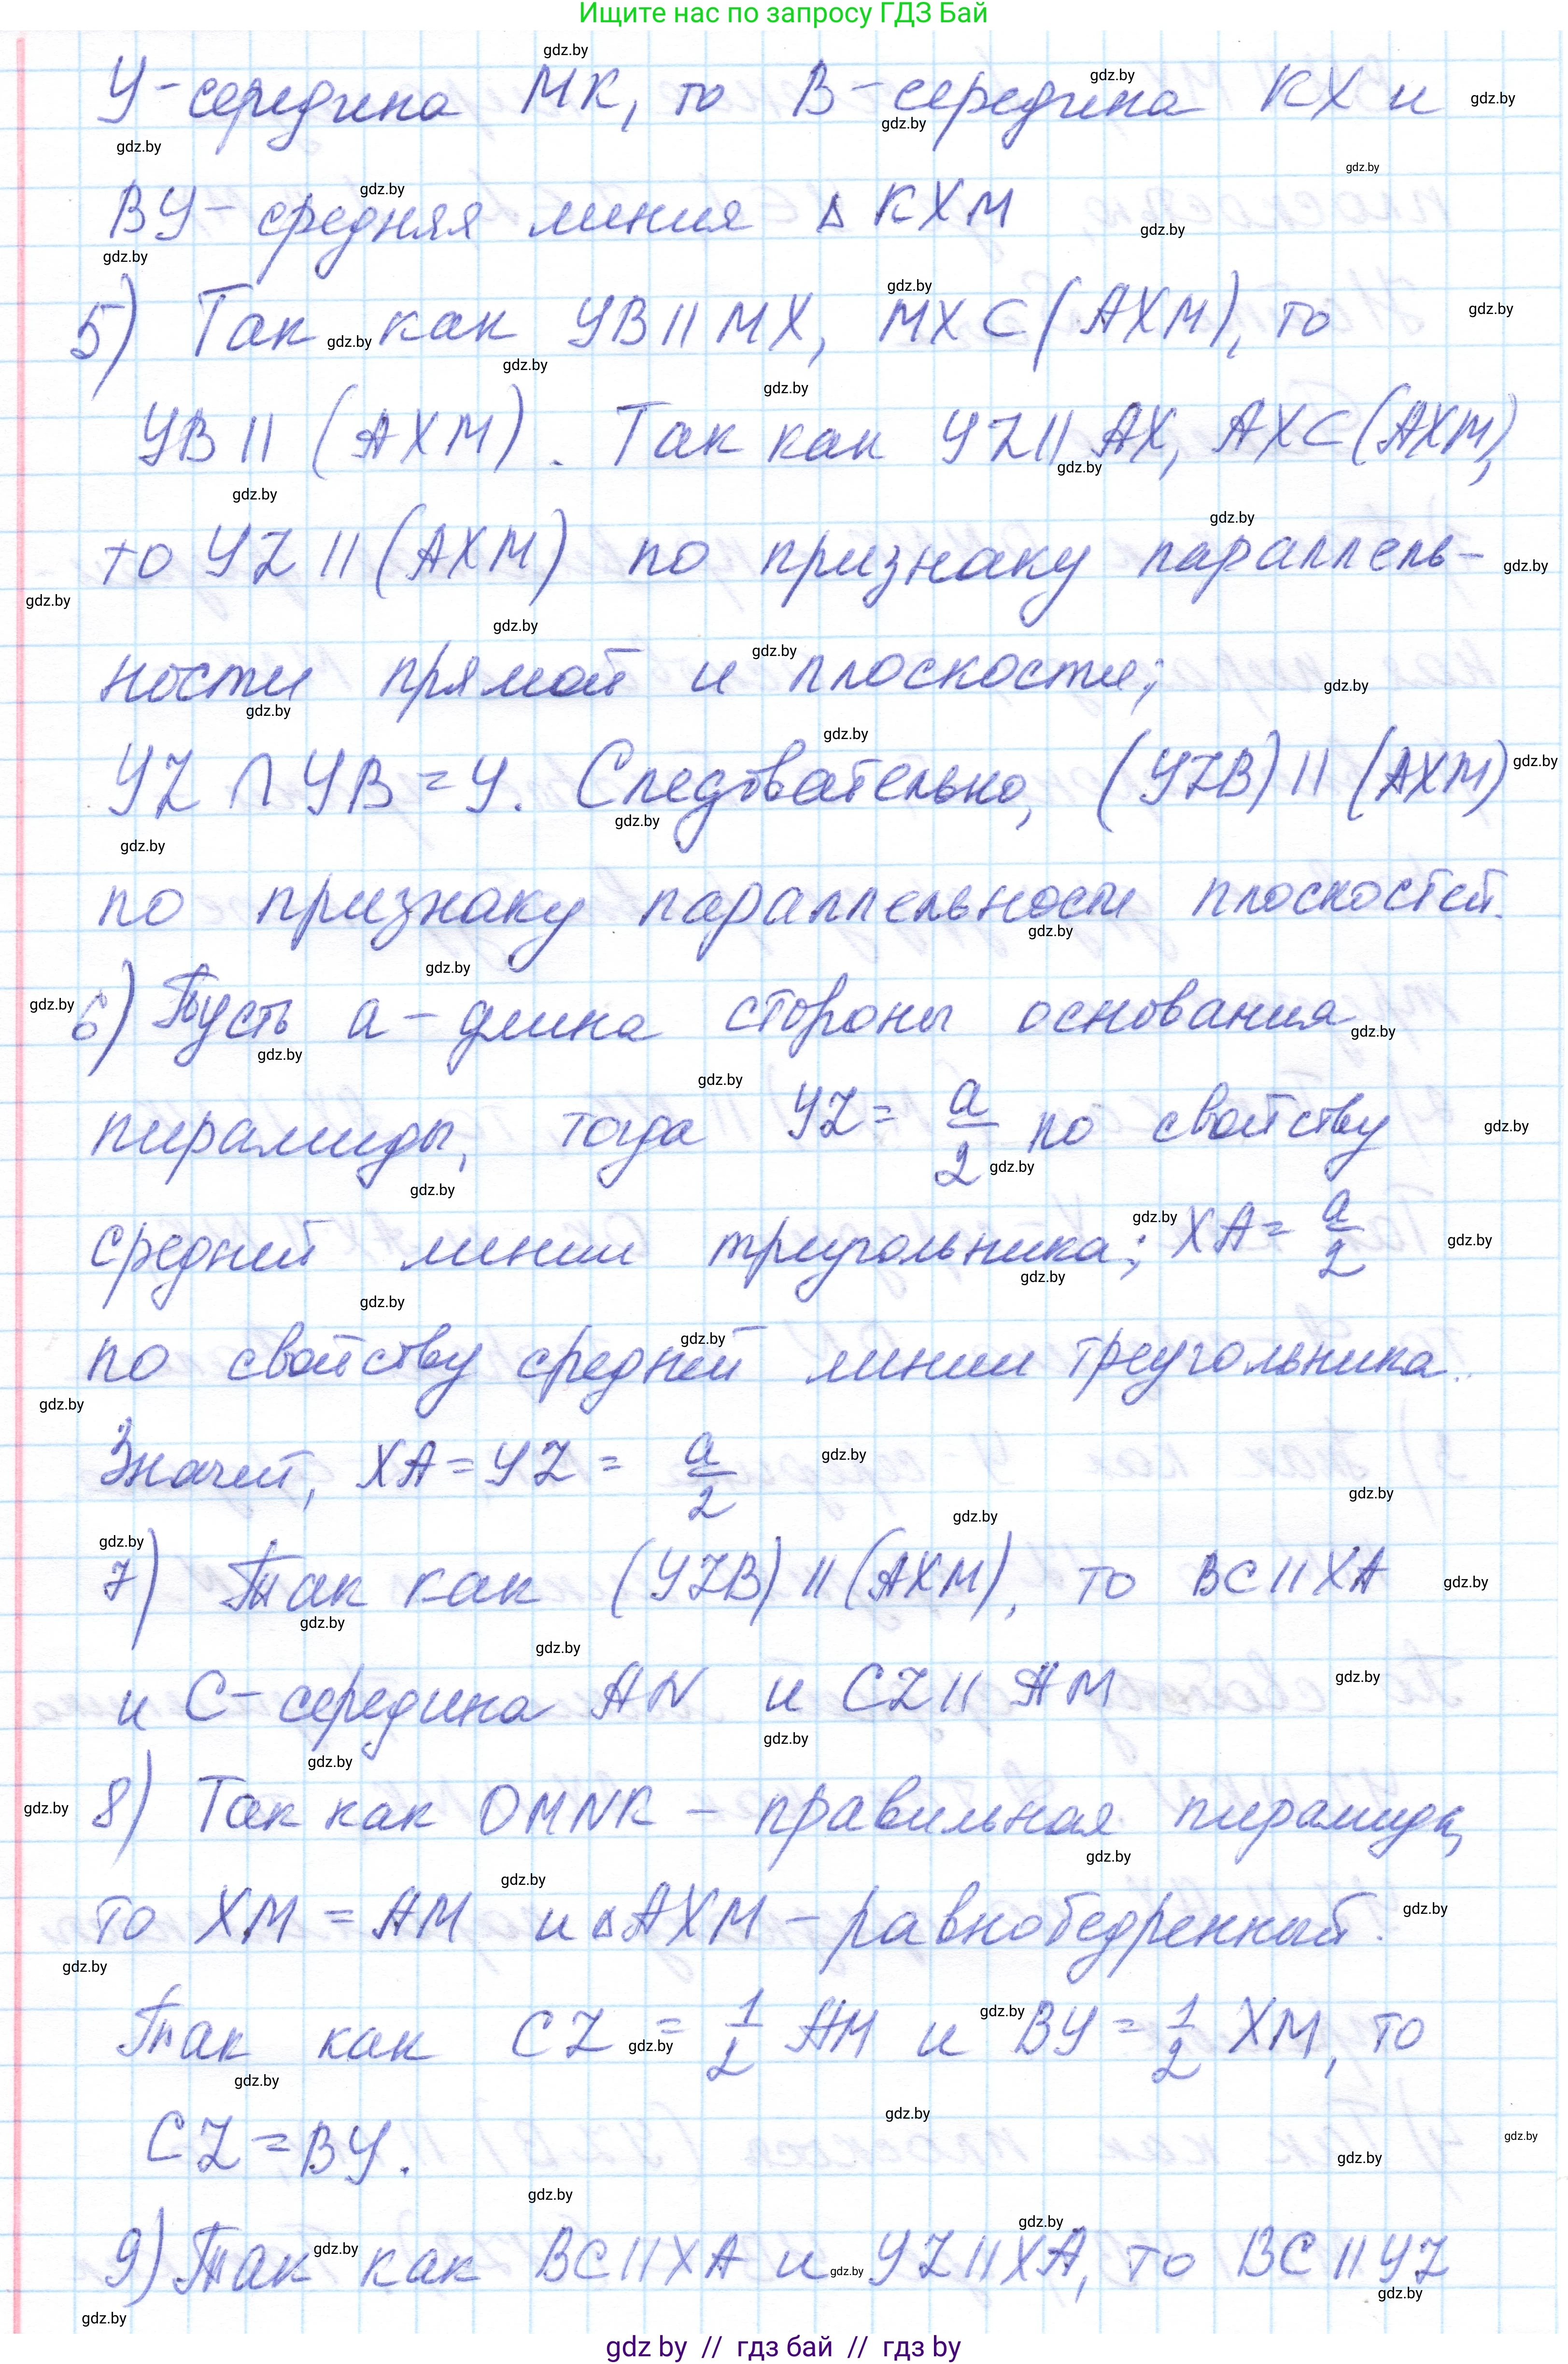 Ищите нас по запросу ГДЗ Бай
Y-середина MK, то B-середина KX и
BY- средняя линия Δ KXM
5) Так как YB || MX, MX ⊂ (AXM), то
YB || (AXM). Так как YZ || AX, AX ⊂ (AXM),
то YZ || (AXM) по признаку параллель-
ности прямой и плоскости;
YZ ∩ YB = Y. Следовательно, (YZB) || (AXM)
по признаку параллельности плоскостей.
6) Пусть a - длина стороны основания
пирамиды, тогда YZ = a/2 по свойству
средней линии треугольника; XA = a/2
по свойству средней линии треугольника.
Значит, XA = YZ = a/2
7) Так как (YZB) || (AXM), то BC || XA
и C- середина AN и CZ || AM
8) Так как OMNK - правильная пирамида,
то XM = AM и Δ AXM - равнобедренный.
Так как CZ = 1/2 AM и BY = 1/2 XM, то
CZ = BY.
9) Так как BC || XA и YZ || XA, то BC || YZ
gdz by // гдз бай // гдз by